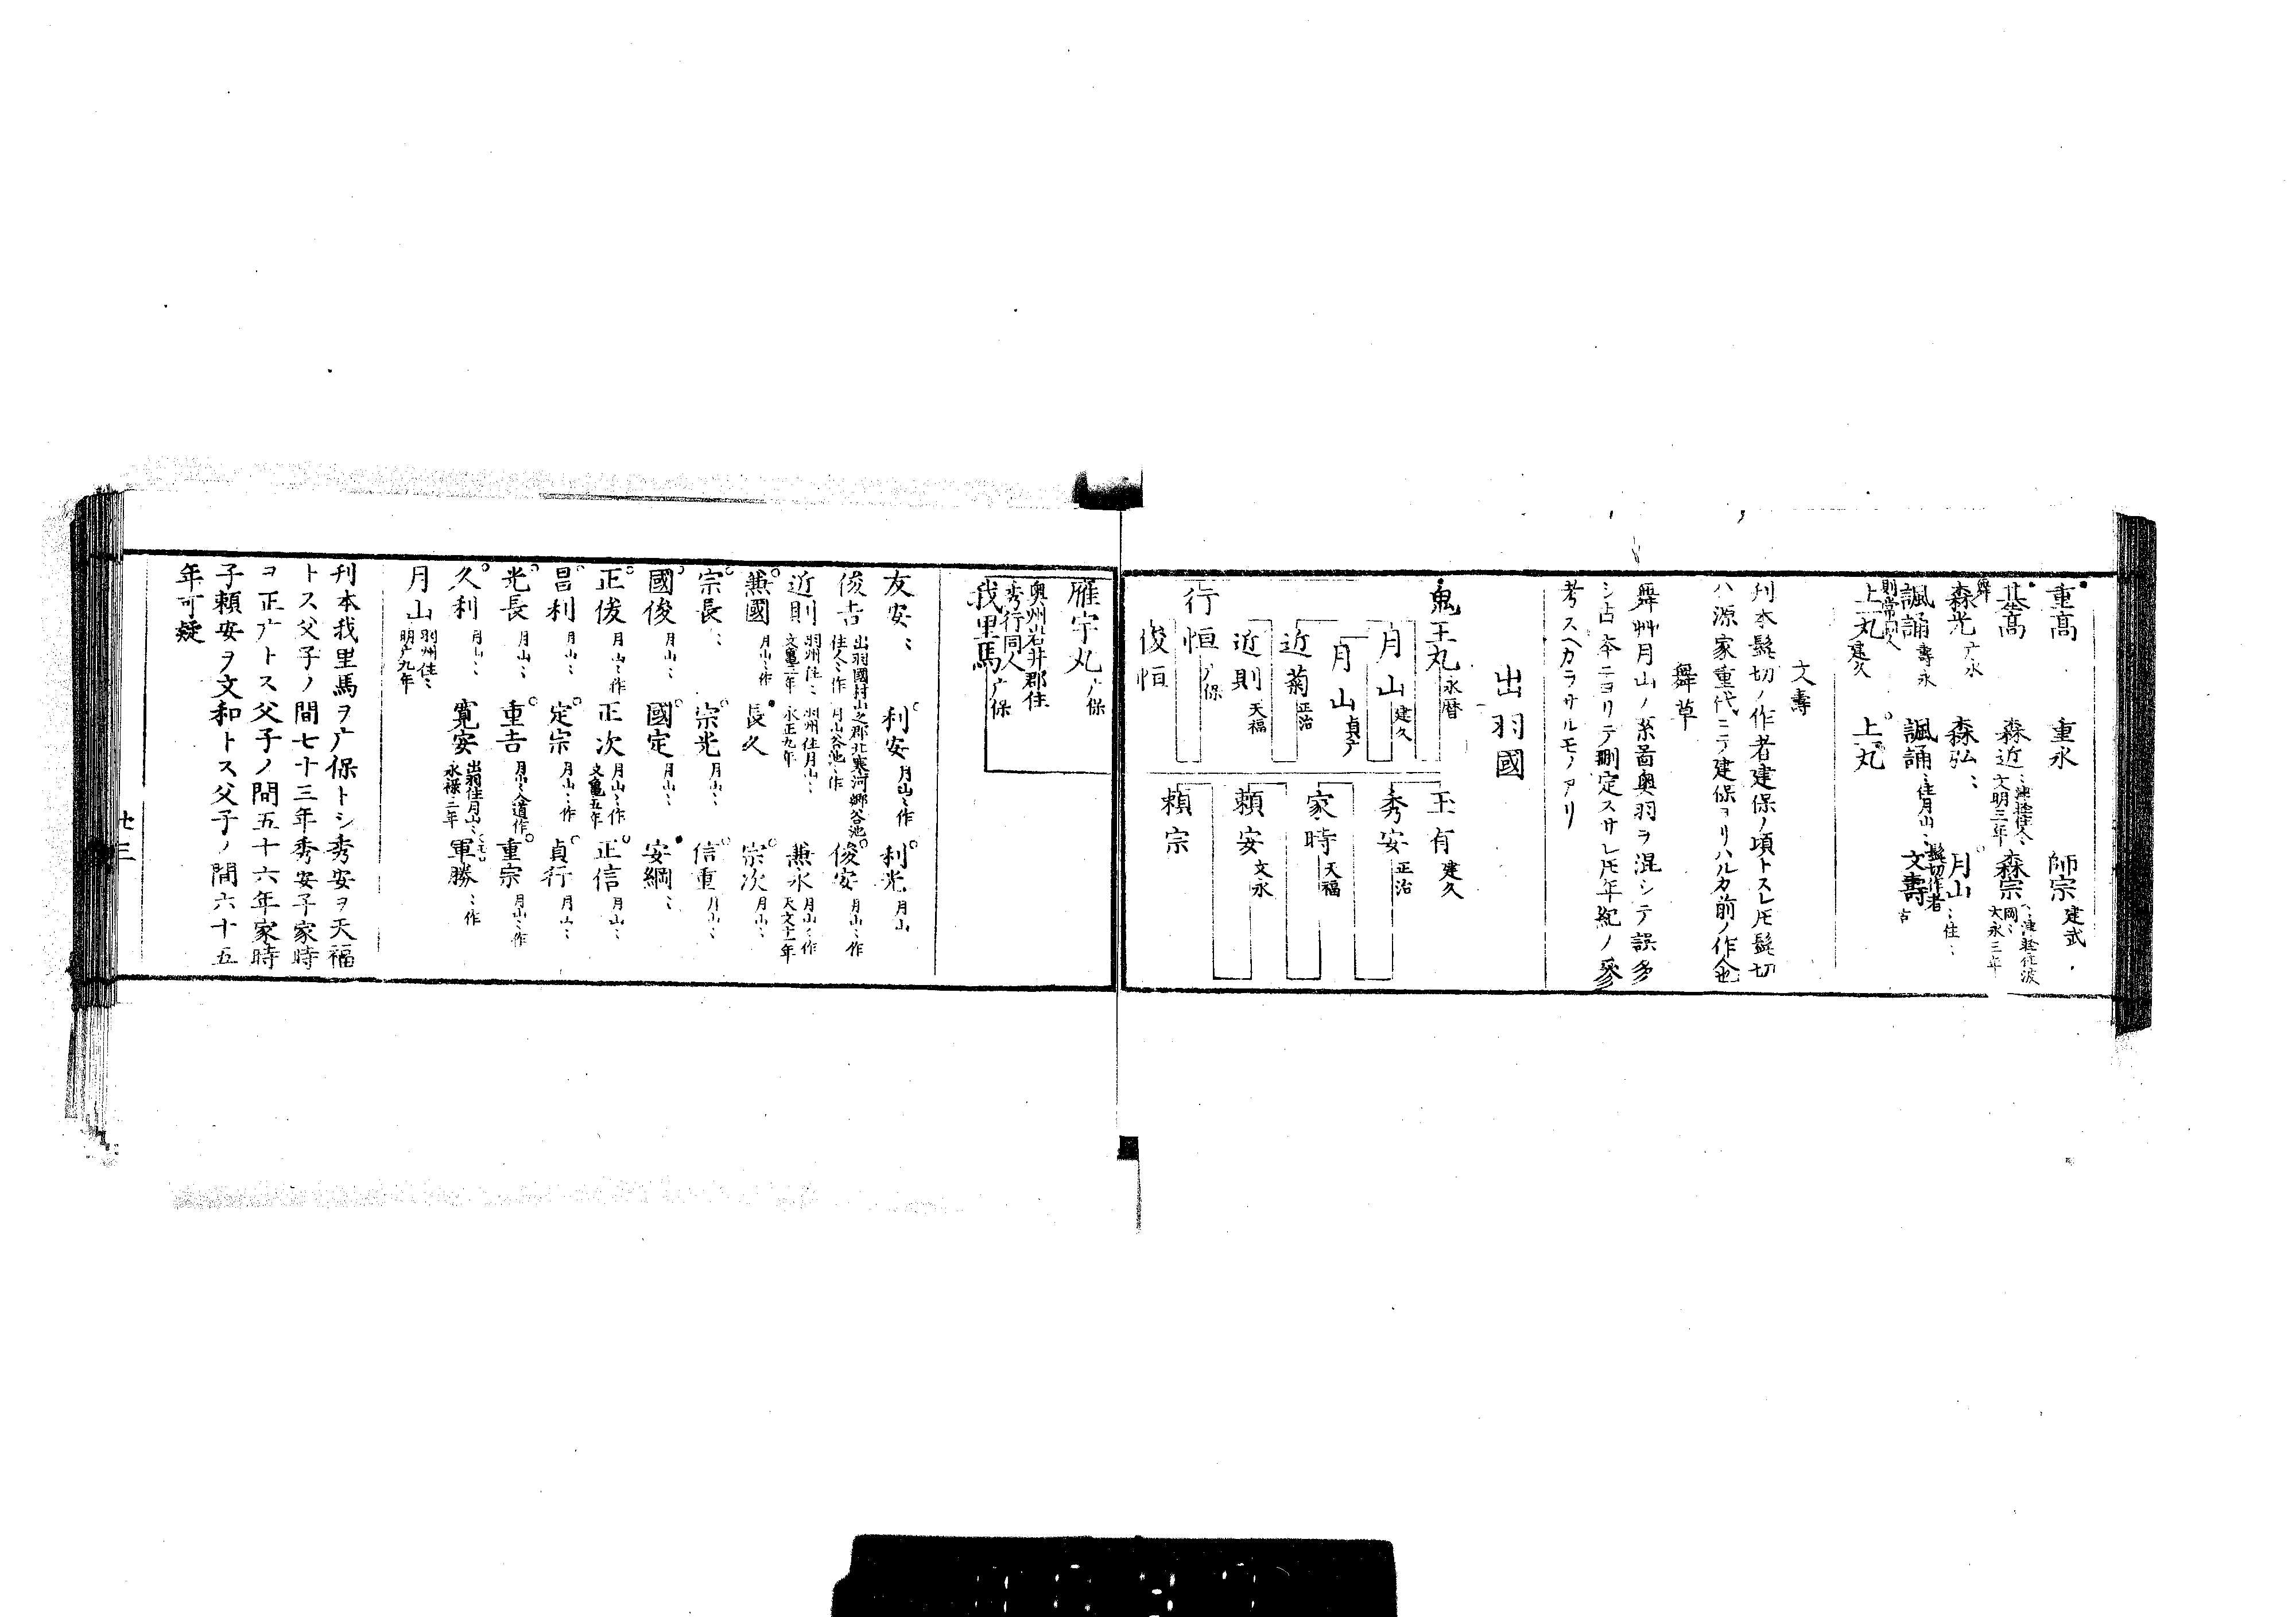 重高
重永
師宗 建武
基高
森近 ミ津軽住ミ 文明三年
森宗 ミ津軽住波岡ミ 大永三年
舞
森光 广永
森弘ミ
月山 ミ住ミ
諷誦 壽永
諷誦 ミ住月山ミ
髭切作者
文壽
上一丸 建久
上丸
文壽
刋本髭切ノ作者建保ノ頃トスレ𪜈髭切
ハ源家重代ニテ建保ヨリハルカ前ノ作人也
舞草
舞艸月山ノ系啚奥羽ヲ混シテ誤多
シ占本ニヨリテ刪定スサレ𪜈年紀ノ參
考スヘカラサルモノアリ
出羽國
鬼王丸 永暦
玉有 建久
月山 建久
秀安 正治
月山 貞广
家時 天福
近菊 正治
近則 天福
頼安 文永
行恒 广保
俊恒
頼宗
雁宇丸 广保
奥州岩井郡住
秀行同人
我里馬 广保
友安ミ
利安 月山ミ作
利光 月山
俊吉 出羽國村山之郡北寒河郷谷池住人ミ作
月山谷池ミ作
俊安 月山ミ作
近則 羽州住ミ 文亀二年
羽州住月山ミ 永正九年
兼永 月山ミ作 天文十一年
兼國 月山ミ作
長久
宗次 月山ミ
宗長ミ
宗光 月山ミ
信重 月山ミ
國俊 月山ミ
國定 月山ミ
安綱ミ
正俊 月山ミ作
正次 月山ミ作 文亀五年
正信 月山ミ
昌利 月山ミ
定宗 月山ミ作
貞行 月山ミ
光長 月山ミ
重吉 月山ミ入道作
重宗 月山ミ作
久利 月山ミ
寛安 出羽住月山ミ 永禄二年
軍勝 ミ作
月山 羽州住ミ 明广九年
刋本我里馬ヲ广保トシ秀安ヲ天福
トス父子ノ間七十三年秀安子家時
ヲ正广トス父子ノ間五十六年家時
子頼安ヲ文和トス父子ノ間六十五
年可疑
廿三